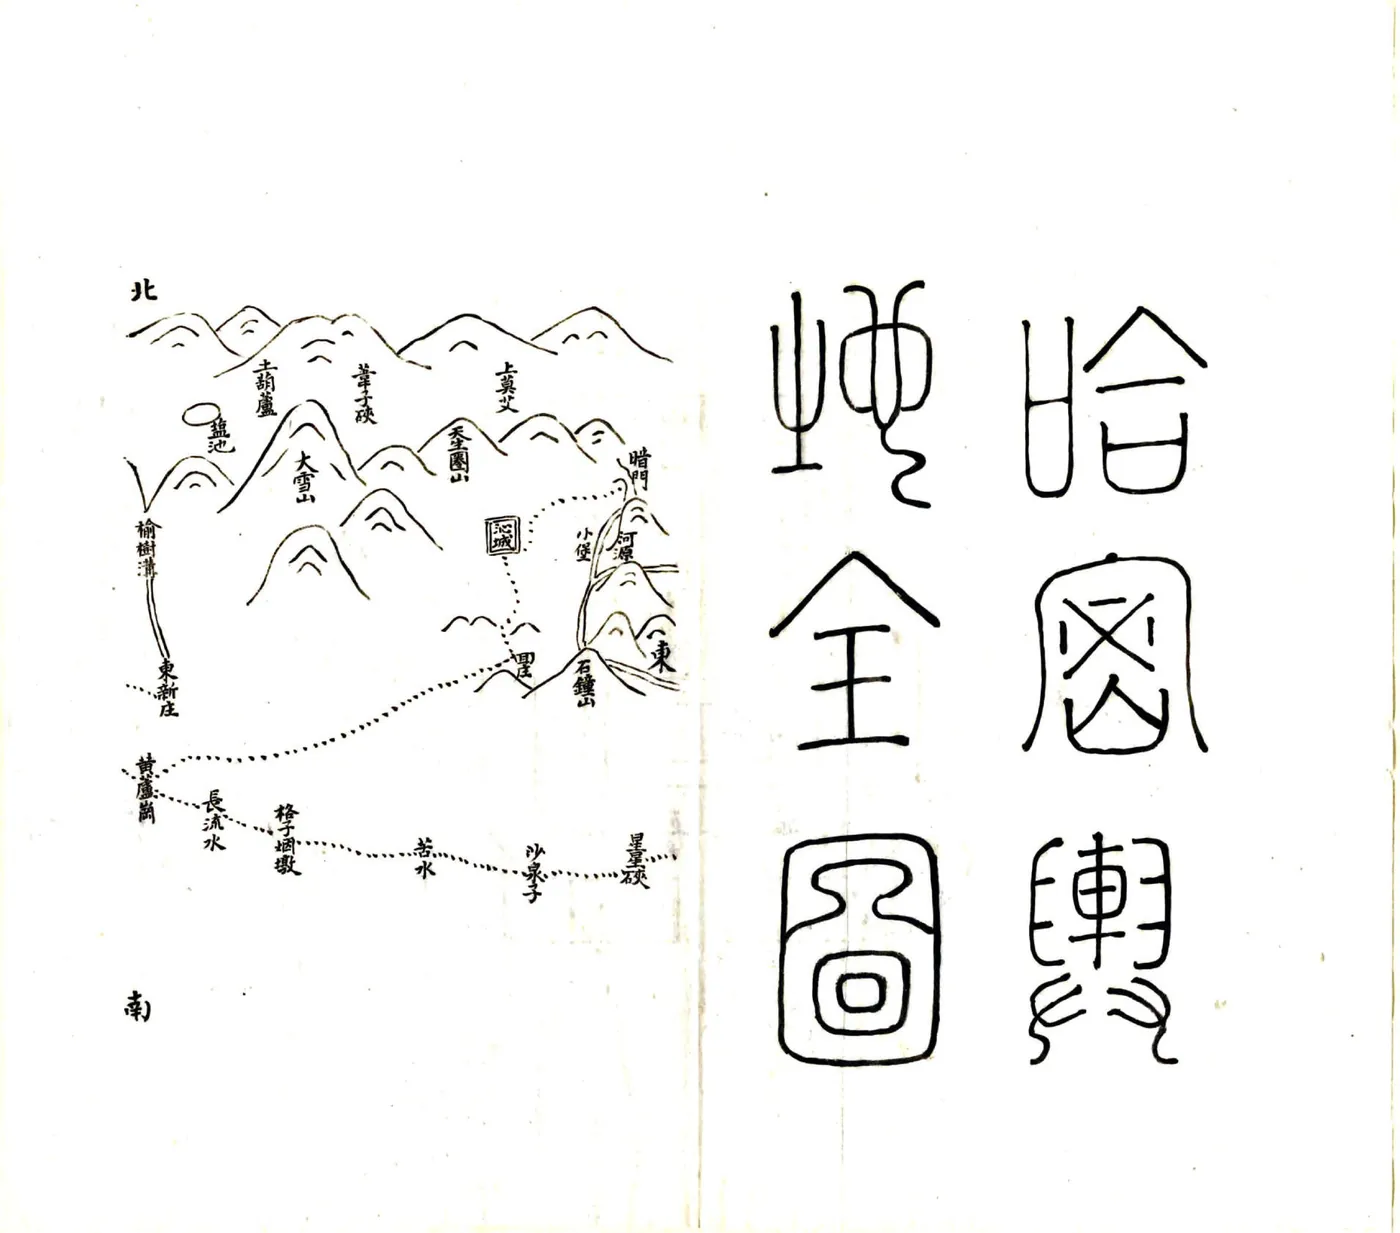 哈密輿
地全圖
北
土葫蘆
葦子硤
上莫艾
鹽池
大雪山
天生圈山
暗門
榆樹溝
沁城
小堡
河源
東
東新庄
回庄
石鐘山
黃蘆崗
長流水
格子烟墩
苦水
沙泉子
星星硤
南